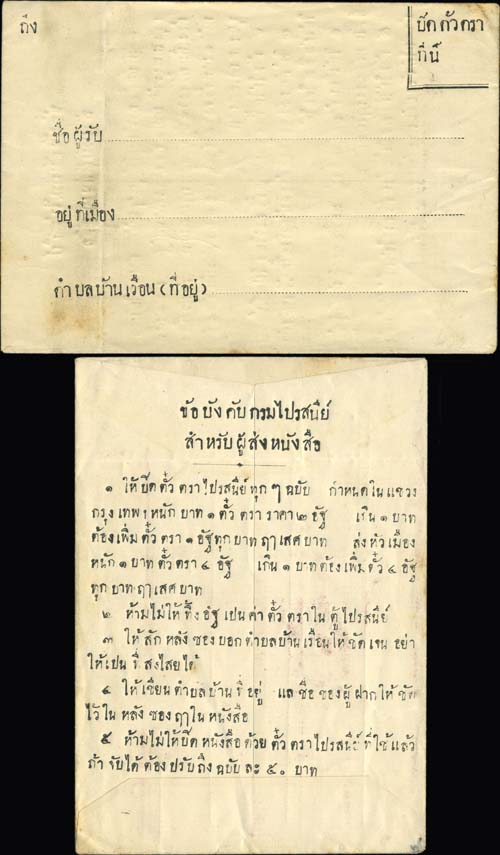 ถึง
บีดตั๋วตรา
ที่นี้
ชื่อผู้รับ
อยู่ที่เมือง
ตำบลบ้านเรือน (ที่อยู่)
ข้อบังคับกรมไปรสนีย์
สำหรับผู้ส่งหนังสือ
๑ ให้บีดตั๋วตราไปรสนีย์ทุกๆฉบับ กำหนดในแขวง
กรุงเทพฯ หนัก ๑ บาท ตั๋วตราราคา ๒ อัฐ เกิน ๑ บาท
ต้องเพิ่มตั๋วตรา ๑ อัฐทุกบาท ฤๅเสศบาท ส่งหัวเมือง
หนัก ๑ บาท ตั๋วตรา ๔ อัฐ เกิน ๑ บาทต้องเพิ่มตั๋ว ๔ อัฐ
ทุกบาทฤๅเสศบาท
๒ ห้ามไม่ให้ทิ้งอัฐเปนค่าตั๋วตราในตู้ไปรสนีย์
๓ ให้สักหลังซองบอกตำบลบ้านเรือนให้ชัดเจน อย่า
ให้เปนที่สงไสยได้
๔ ให้เขียนตำบลบ้านที่อยู่ แลชื่อของผู้ฝากให้ชัด
ไว้ในหลังซองฤๅในหนังสือ
๕ ห้ามไม่ให้บีดหนังสือด้วยตั๋วตราไปรสนีย์ที่ใช้แล้ว
ถ้าจับได้ต้องปรับถึงฉบับละ ๕๐ บาท